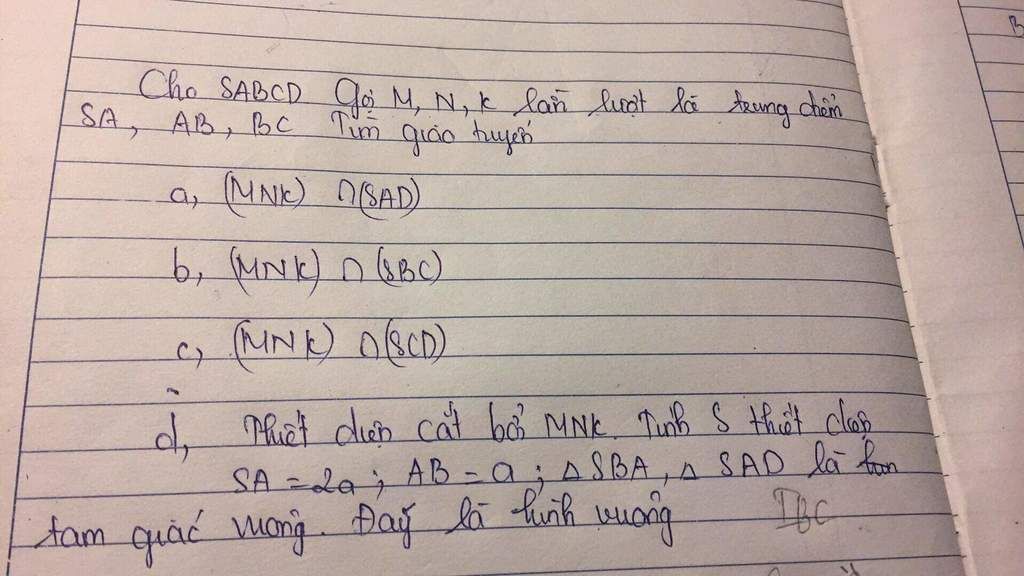 Cho SABCD Gọi M, N, K lần lượt là trung điểm
SA, AB, BC Tìm giao tuyến
a, (MNK) ∩ (SAD)
b, (MNK) ∩ (SBC)
c, (MNK) ∩ (SCD)
d, Thiết diện cắt bởi MNK. Tính S thiết diện
SA = 2a ; AB = a ; △ SBA, △ SAD là
tam giác vuông. Đáy là hình vuông IBC
B